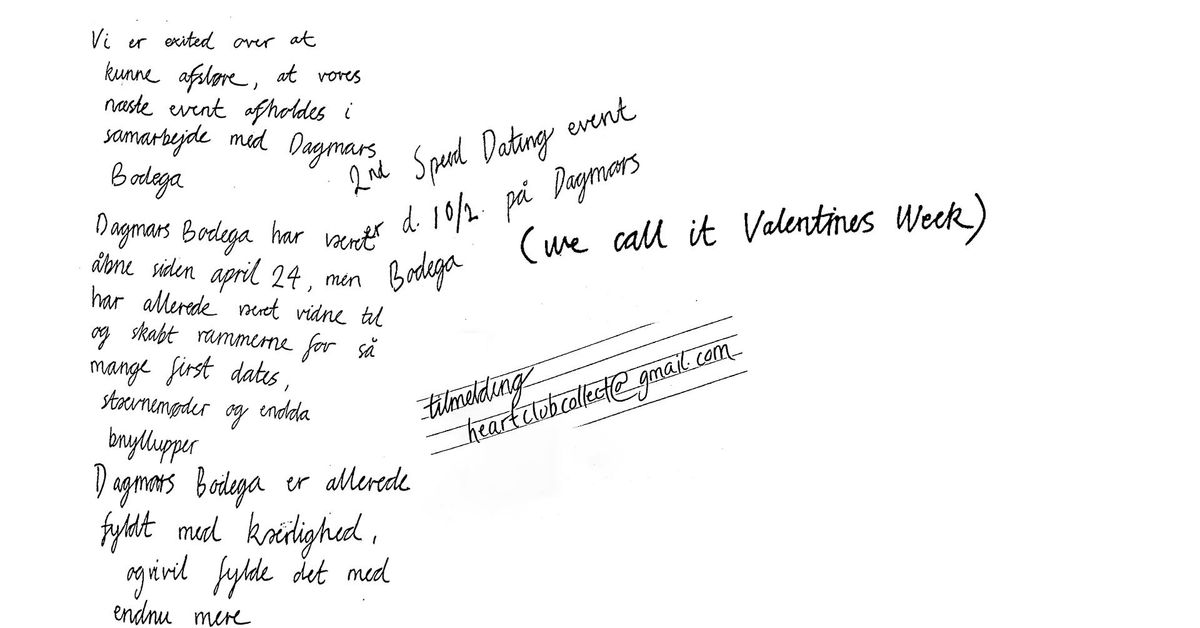 Vi er exited over at
kunne afsløre, at vores
næste event afholdes i
samarbejde med Dagmars
Bodega
Dagmars Bodega har været
åbne siden april 24, men
har allerede været vidne til
og skabt rammerne for så
mange first dates,
stævnemøder og endda
bryllupper
Dagmars Bodega er allerede
fyldt med kærlighed,
og vi vil fylde det med
endnu mere
2nd Speed Dating event
er d. 10/2. på Dagmars
Bodega
(we call it Valentines Week)
tilmelding
heartclubcollect@gmail.com